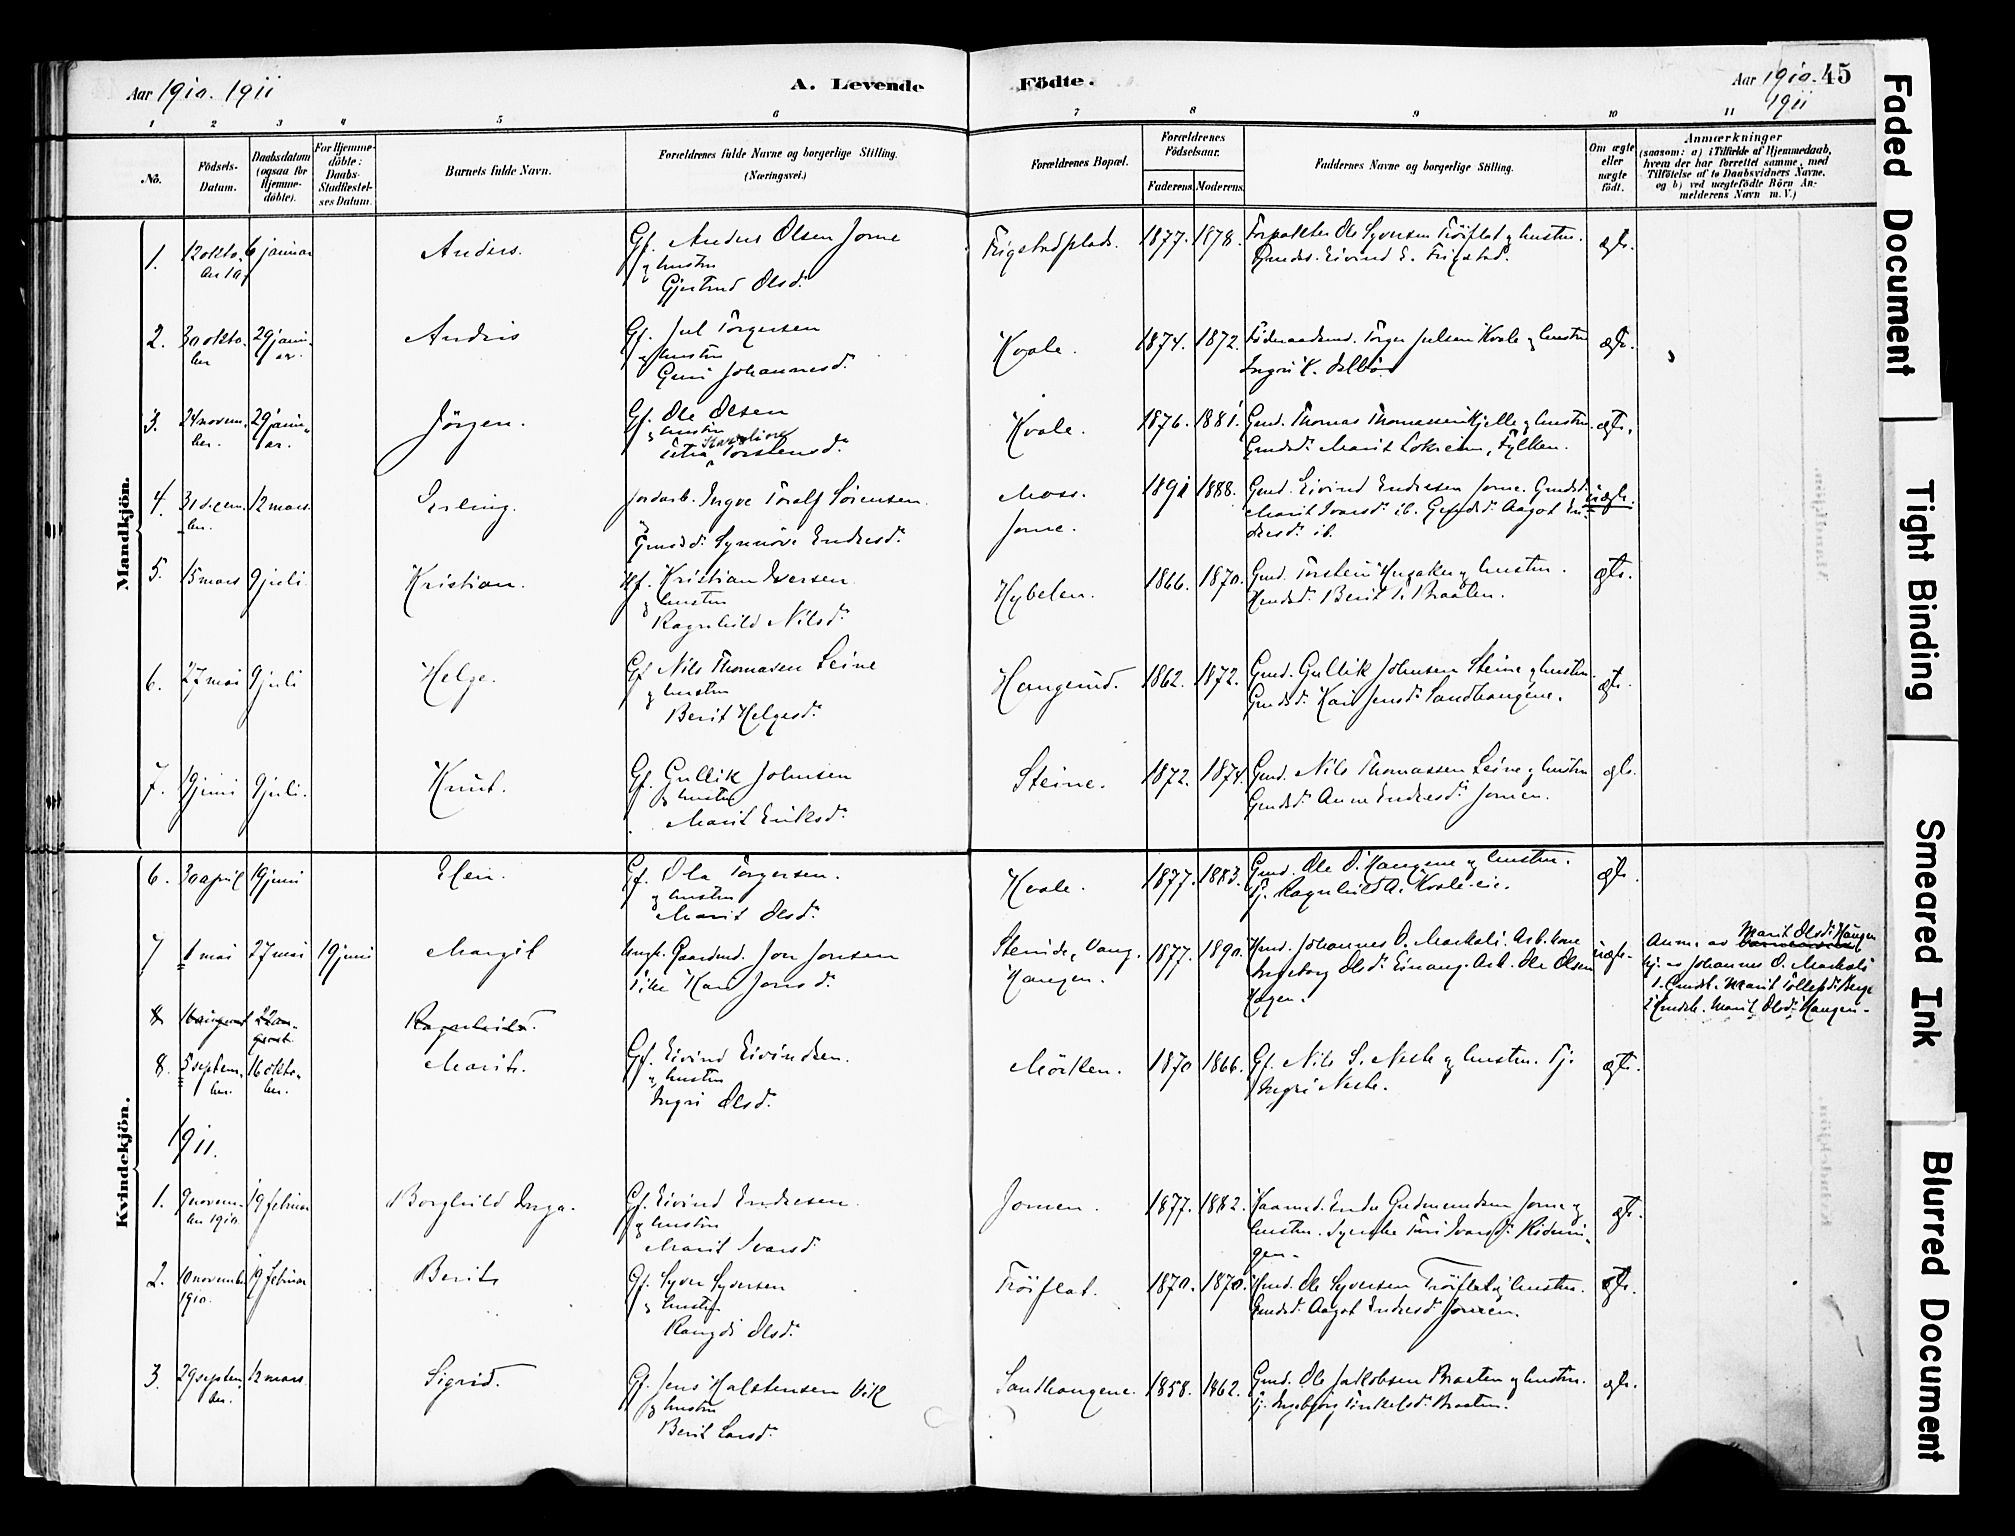 Aar 1910. 1911
A. Levende
Födte.
Aar 1910. 45
1911
1 2 3 4 5 6 7 8 9 10 11
No.
Födsels-
Datum.
Daabsdatum
(ogsaa for
Hjemme-
döbte).
For Hjemme-
döbte:
Daabs-
Stadfæstel-
ses Datum.
Barnets fulde Navn.
Forældrenes fulde Navne og borgerlige Stilling.
(Næringsvei.)
Forældrenes Bopæl.
Forældrenes
Födselsaar.
Faderens.
Moderens.
Faddernes Navne og borgerlige Stilling.
Om ægte
eller
uægte
födt.
Anmærkninger
(saasom: a) i Tilfælde af Hjemmedaab,
hvem der har forrettet samme, med
Tilföielse af to Daabsvidners Navne,
og b) ved uægtefödte Börn An-
melderens Navn m. V.)
Mandkjön.
1. 12 okto- 6 januar Anders. Gf. Anders Olsen Jome
og hustru
Gjertrud Olsd.
Frigstadplads. 1877. 1878. Forpakter Ole Syversen Tröiflat og hustru.
Eivind E. Frigstad. ægte.
2. 30 okto-
ber
29 janu-
ar.
Andris Gf. Jul Torgersen
og hustru
Guri Johannesd.
Kvale. 1874. 1872. Föderaadsmd. Torger Julsen Kvale og hustru
Ingri K. ægte.
3. 24 novem-
ber.
29 janu-
ar.
Jörgen. Gf. Ole Olsen
og hustru
Torstensd.
Kvale. 1876. 1881. Gmd. Thomas Thomassen Kjelle og hustru.
Gmdsd. Marit Lokreim, Fylken. ægte.
4. 31 decem-
ber.
12 mars. Erling. Jordarb. Ingvor Toralf Sörensen.
Gmdsd. Synnöve Endresd.
Moss.
Jome.
1891 1888. Gmd. Eivind Endresen Jome. Gmdsd.
Marit Ivarsd. ib. Gmdsd. Aagot En-
dresd. ib.
uægte.
5. 15 mars 9 juli. Kristian. Hf. Kristian Iversen
og hustru
Ragnhild Nilsd.
Hybelen. 1866. 1870. Gmd. Torstein Hugaker og hustru.
Hmdsd. Berit T. Braaten. ægte.
6. 27 mai 9 juli Helge. Gf. Nils Thomasen Leine
og hustru
Berit Helgesd.
Haugerud. 1862. 1872. Gmd. Gullik Johnsen Steine og hustru.
Gmdsd. Kari Jensd. Sandhaugene. ægte.
7. 19 juni 9 juli. Knut. Gf. Gullik Johnsen
og hustru
Marit Eriksd.
Steine. 1872. 1874. Gmd. Nils Thomassen Leine og hustru
Gmdsd. Anne Endresd. Jomen. ægte.
Kvindekjön.
6. 30 april 19 juni Elen. Gf. Ola Torgersen.
og hustru
Marit Olsd.
Kvale. 1877. 1883. Gmd. Ole O. Haugene og hustru.
Tj. Ragnhild A. Kvale. ægte.
7 1 mai 27 mai 19 juni Margit Ungk. Gaardmd. Jon Jonsen
Pike Kari Jonsd.
Steinde, Vang.
Haugen.
1877. 1890. Hmd. Johannes O. Markali. Arb. kone
Ingeborg Olsd. Einang. Arb. Ole Olsen
Hagen.
uægte.
Anm. av Marit Olsd. Haugen
Hj. av Johannes O. Markali
1. Gmdsk. Marit Tollefsd. Berge
2. Hmdsk. Marit Olsd. Haugen.
8 16 august 22 au-
gust.
Ragnhild.
8. 5 septem-
ber.
16 okto-
ber.
Marit. Gf. Eivind Eivindsen.
og hustru
Ingri Olsd.
Mörken. 1870 1866. Gf. Nils S. Neste og hustru. Tj.
Ingri Neste. ægte.
1911.
1. 9 novem-
ber 1910.
19 februar Borghild Inga. Gf. Eivind Endresen.
og hustru
Marit Ivarsd.
Jomen. 1877. 1882. Kaarmd. Endre Gudmundsen Jome og
hustru. Syerske Turi Ivarsd. Rödnin-
gen.
ægte.
2. 10 novembr.
1910.
19 februar Berit Gf. Syver Syversen
og hustru
Rangdi Olsd.
Tröiflat. 1870. 1870. Hmd. Ole Syversen Tröiflat og hustru.
Gmdsd. Aagot Endresd. Jomen. ægte.
3. 29 septem-
ber.
12 mars. Sigrid. Gf. Jens Halstensen Vik
og hustru
Berit Larsd.
Sandhaugene. 1858. 1862. Gmd. Ole Jakobsen Braaten og hustru.
Tj. Ingebjörg Tinkelsd. Braaten. ægte.
Faded Document
Tight Binding
Smeared Ink
Blurred Document